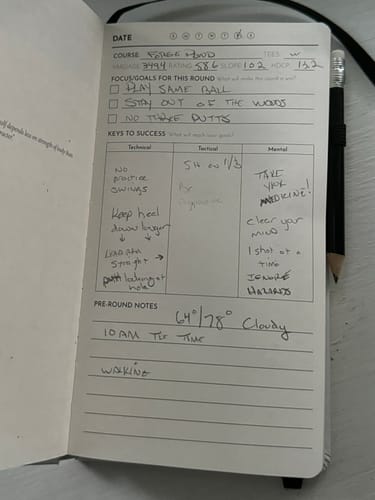 self depends less on strength of body than
character."
DATE S M T W T F S
COURSE Forge Pond TEES W
YARDAGE 3494 RATING 58.6 SLOPE 102 HDCP 13.2
FOCUS/GOALS FOR THIS ROUND What will make this round a win?
PLAY SAME BALL
STAY OUT OF THE WOODS
NO THREE PUTTS
KEYS TO SUCCESS What will reach your goals?
Technical
No practice
swings
Keep heel
down longer
LEAD ARM
Straight →
looking at
hole
Tactical
5H on 1/3
Be
Aggressive
Mental
TAKE
YOUR
MEDICINE!
clear your
MIND
1 shot at a
time
IGNORE
HAZARDS
PRE-ROUND NOTES
64°/78° Cloudy
10 AM TEE TIME
WALKING